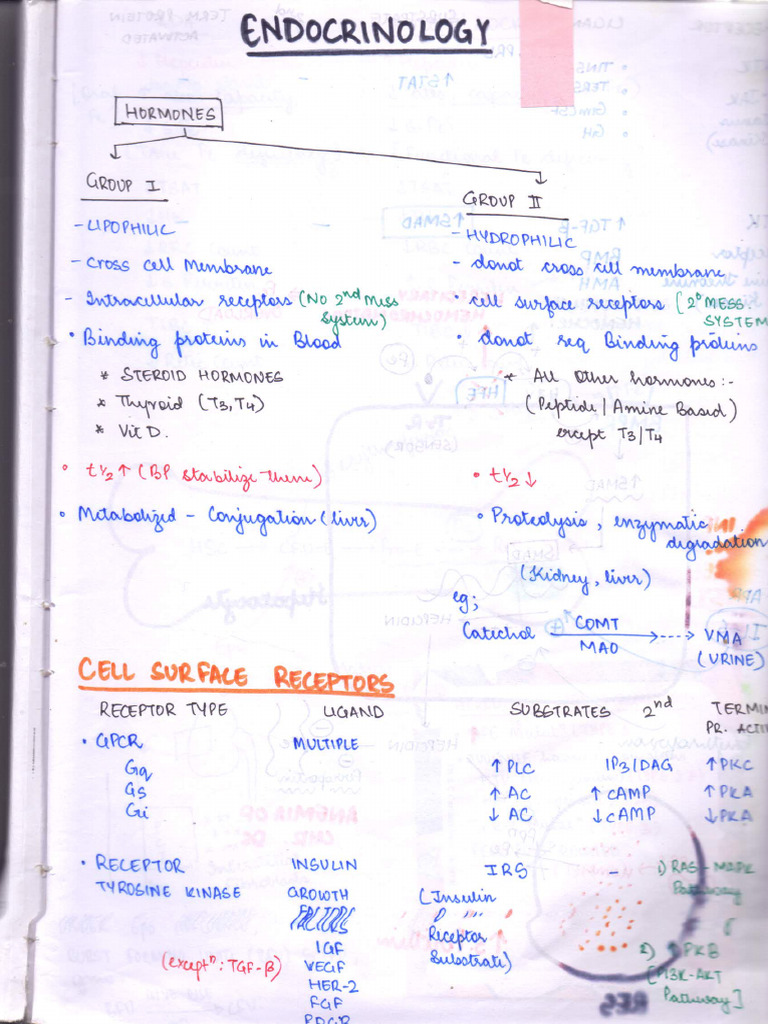 ENDOCRINOLOGY
HORMONES
GROUP I
- LIPOPHILIC
- Cross cell Membrane
- Intracellular receptors (No 2nd Mess System)
• Binding proteins in Blood
* STEROID HORMONES
* Thyroid (T3, T4)
* Vit D.
• t½ ↑ (BP stabilize them)
• Metabolized - Conjugation (liver)
GROUP II
- HYDROPHILIC
- donot cross cell membrane
• cell surface receptors [2° MESS. SYSTEM
• donot req Binding proteins
* All other hormones :-
(Peptide / Amine Based)
except T3/T4
• t½ ↓
• Proteolysis, enzymatic degradation
(Kidney, liver)
eg;
Catechol COMT MAO → VMA
(URINE)
CELL SURFACE RECEPTORS
RECEPTOR TYPE LIGAND SUBSTRATES 2nd TERMIN
PR. ACTI
• GPCR MULTIPLE
Gq ↑ PLC IP3/DAG ↑ PKC
Gs ↑ AC ↑ cAMP ↑ PKA
Gi ↓ AC ↓ cAMP ↓ PKA
• RECEPTOR INSULIN IRS - 1) RAS-MAPK
TYROSINE KINASE GROWTH (Insulin Pathway
FACTORS
Receptor
IGF 2) ↑ PKB
(exceptn: TGF-β) VEGF Substrate) [PI3K-AKT
HER-2 Pathway]
FGF
PDGF